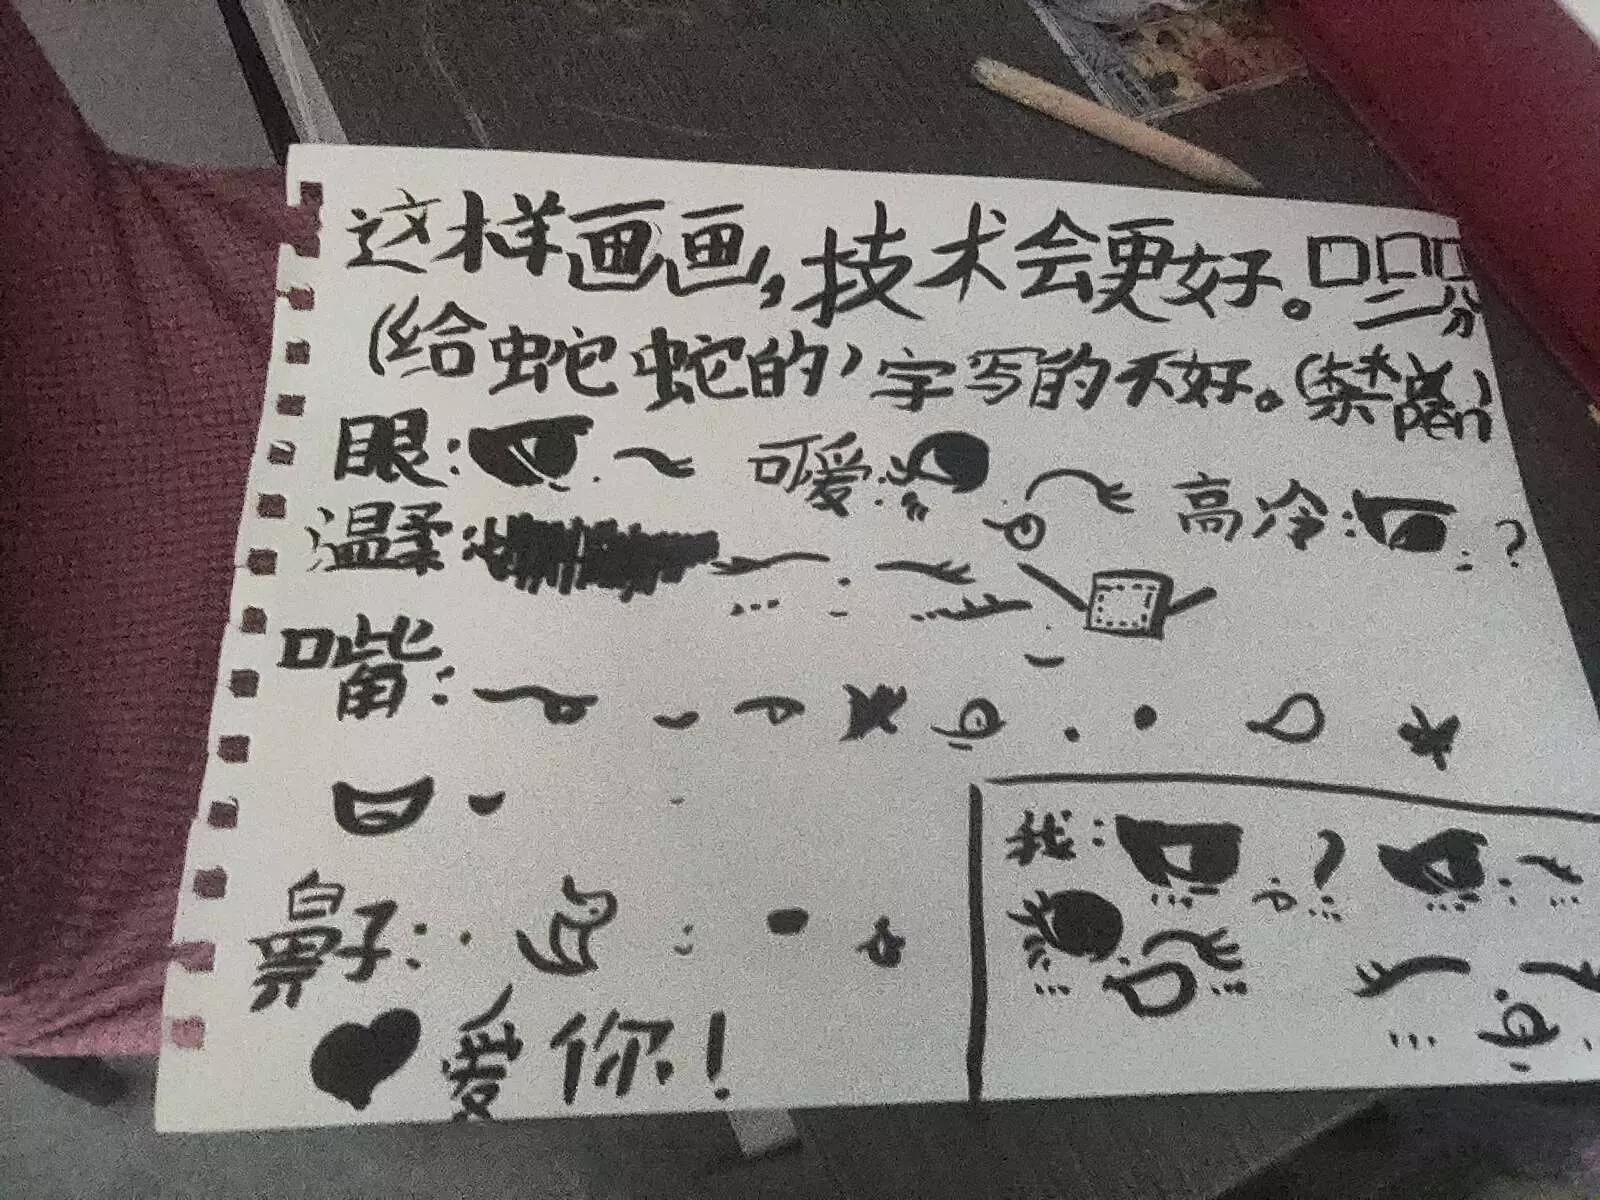 这样画画,技术会更好。口口口
二分
(给蛇蛇的)字写的不好。(禁喷)
pēn
眼: 可爱: 高冷: ?
温柔:
嘴:
鼻子:
爱你!
我: